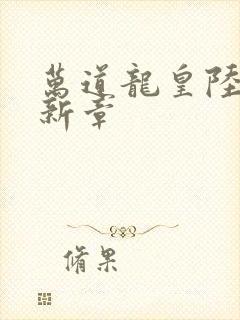 萬道龍皇陸
新章
脩果